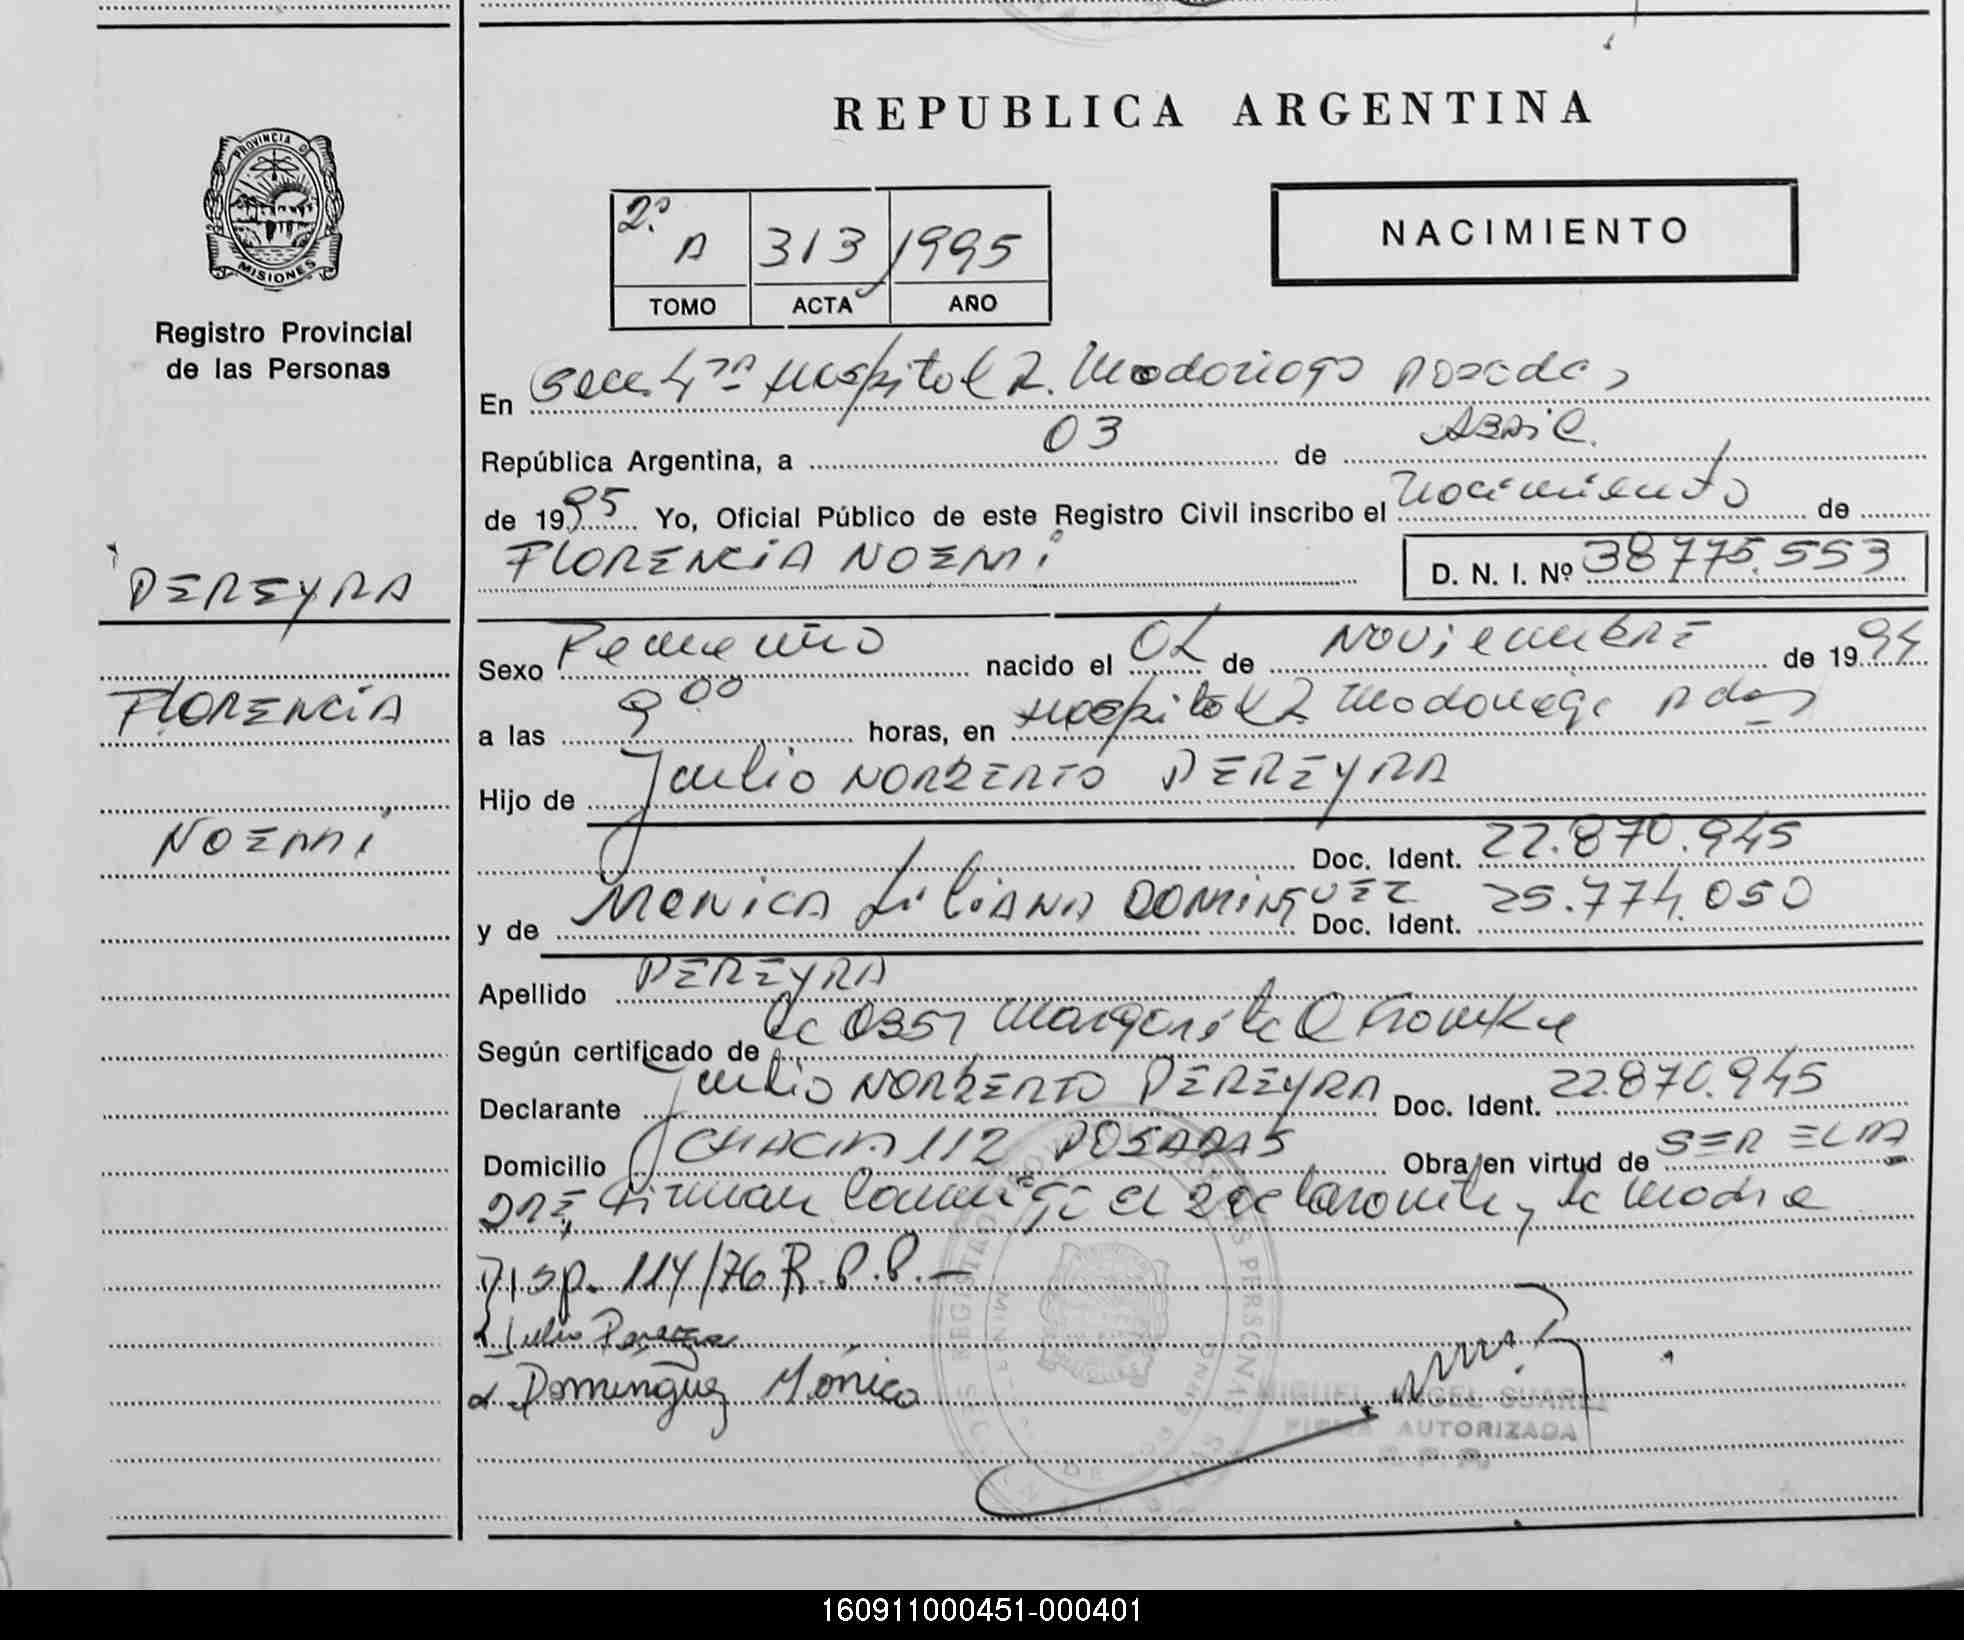 REPUBLICA ARGENTINA
PROVINCIA D
MISIONES
Registro Provincial
de las Personas
2º A 313 1995
TOMO ACTA AÑO
NACIMIENTO
En Secc. 4ta Hospital R. Madariaga Posadas,
República Argentina, a 03 de ABRIL.
de 1995 Yo, Oficial Público de este Registro Civil inscribo el Nacimiento de
FLORENCIA NOEMI D. N. I. Nº 38.775.553
PEREYRA
FLORENCIA
NOEMI
Sexo Femenino nacido el 02 de NOVIEMBRE de 1994
a las 9 00 horas, en Hospital R Madariaga Pdas
Hijo de Julio NORBERTO PEREYRA
Doc. Ident. 22.870.945
y de MONICA LILIANA DOMINGUEZ Doc. Ident. 25.774.050
Apellido PEREYRA
Según certificado de Margarita
Declarante Julio NORBERTO PEREYRA Doc. Ident. 22.870.945
Domicilio CHACRA 112 POSADAS Obra en virtud de SER EL PA
DRE, Firman conmigo el declarante y la madre
Disp. 114/76 R.P.P.-
Julio Pereyra
Dominguez Mónica
MIGUEL ANGEL SUAREZ
FIRMA AUTORIZADA
R. P. P.
160911000451-000401